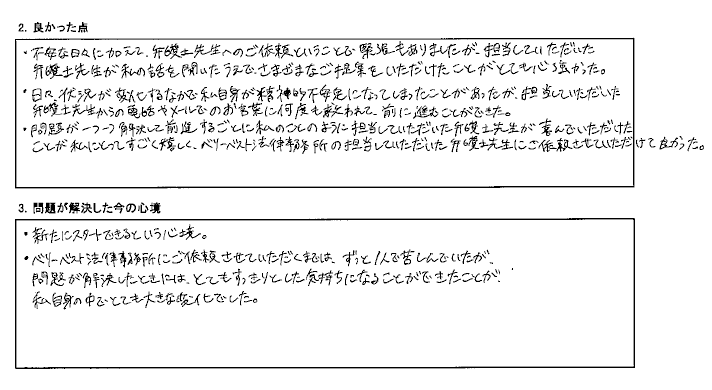 2. 良かった点
・不安な日々に加えて、弁護士先生へのご依頼ということで緊張もありましたが、担当していただいた
弁護士先生が私の話を聞いたうえでさまざまなご提案をいただけたことがとても心強かった。
・日々、状況が変化するなかで私自身が精神的不安定になってしまったことがあったが、担当していただいた
弁護士先生からの電話やメールでのお言葉に何度も救われて、前に進むことができた。
・問題が一つ一つ解決して前進するごとに私のことのように担当していただいた弁護士先生が喜んでいただけた
ことが私にとってすごく嬉しく、ベリーベスト法律事務所の担当していただいた弁護士先生にご依頼させていただけて良かった。
3. 問題が解決した今の心境
・新たにスタートできるという心境。
・ベリーベスト法律事務所にご依頼させていただくまでは、ずっと1人で苦しんでいたが、
問題が解決したときには、とてもすっきりとした気持ちになることができたことが、
私自身の中でとても大きな変化でした。